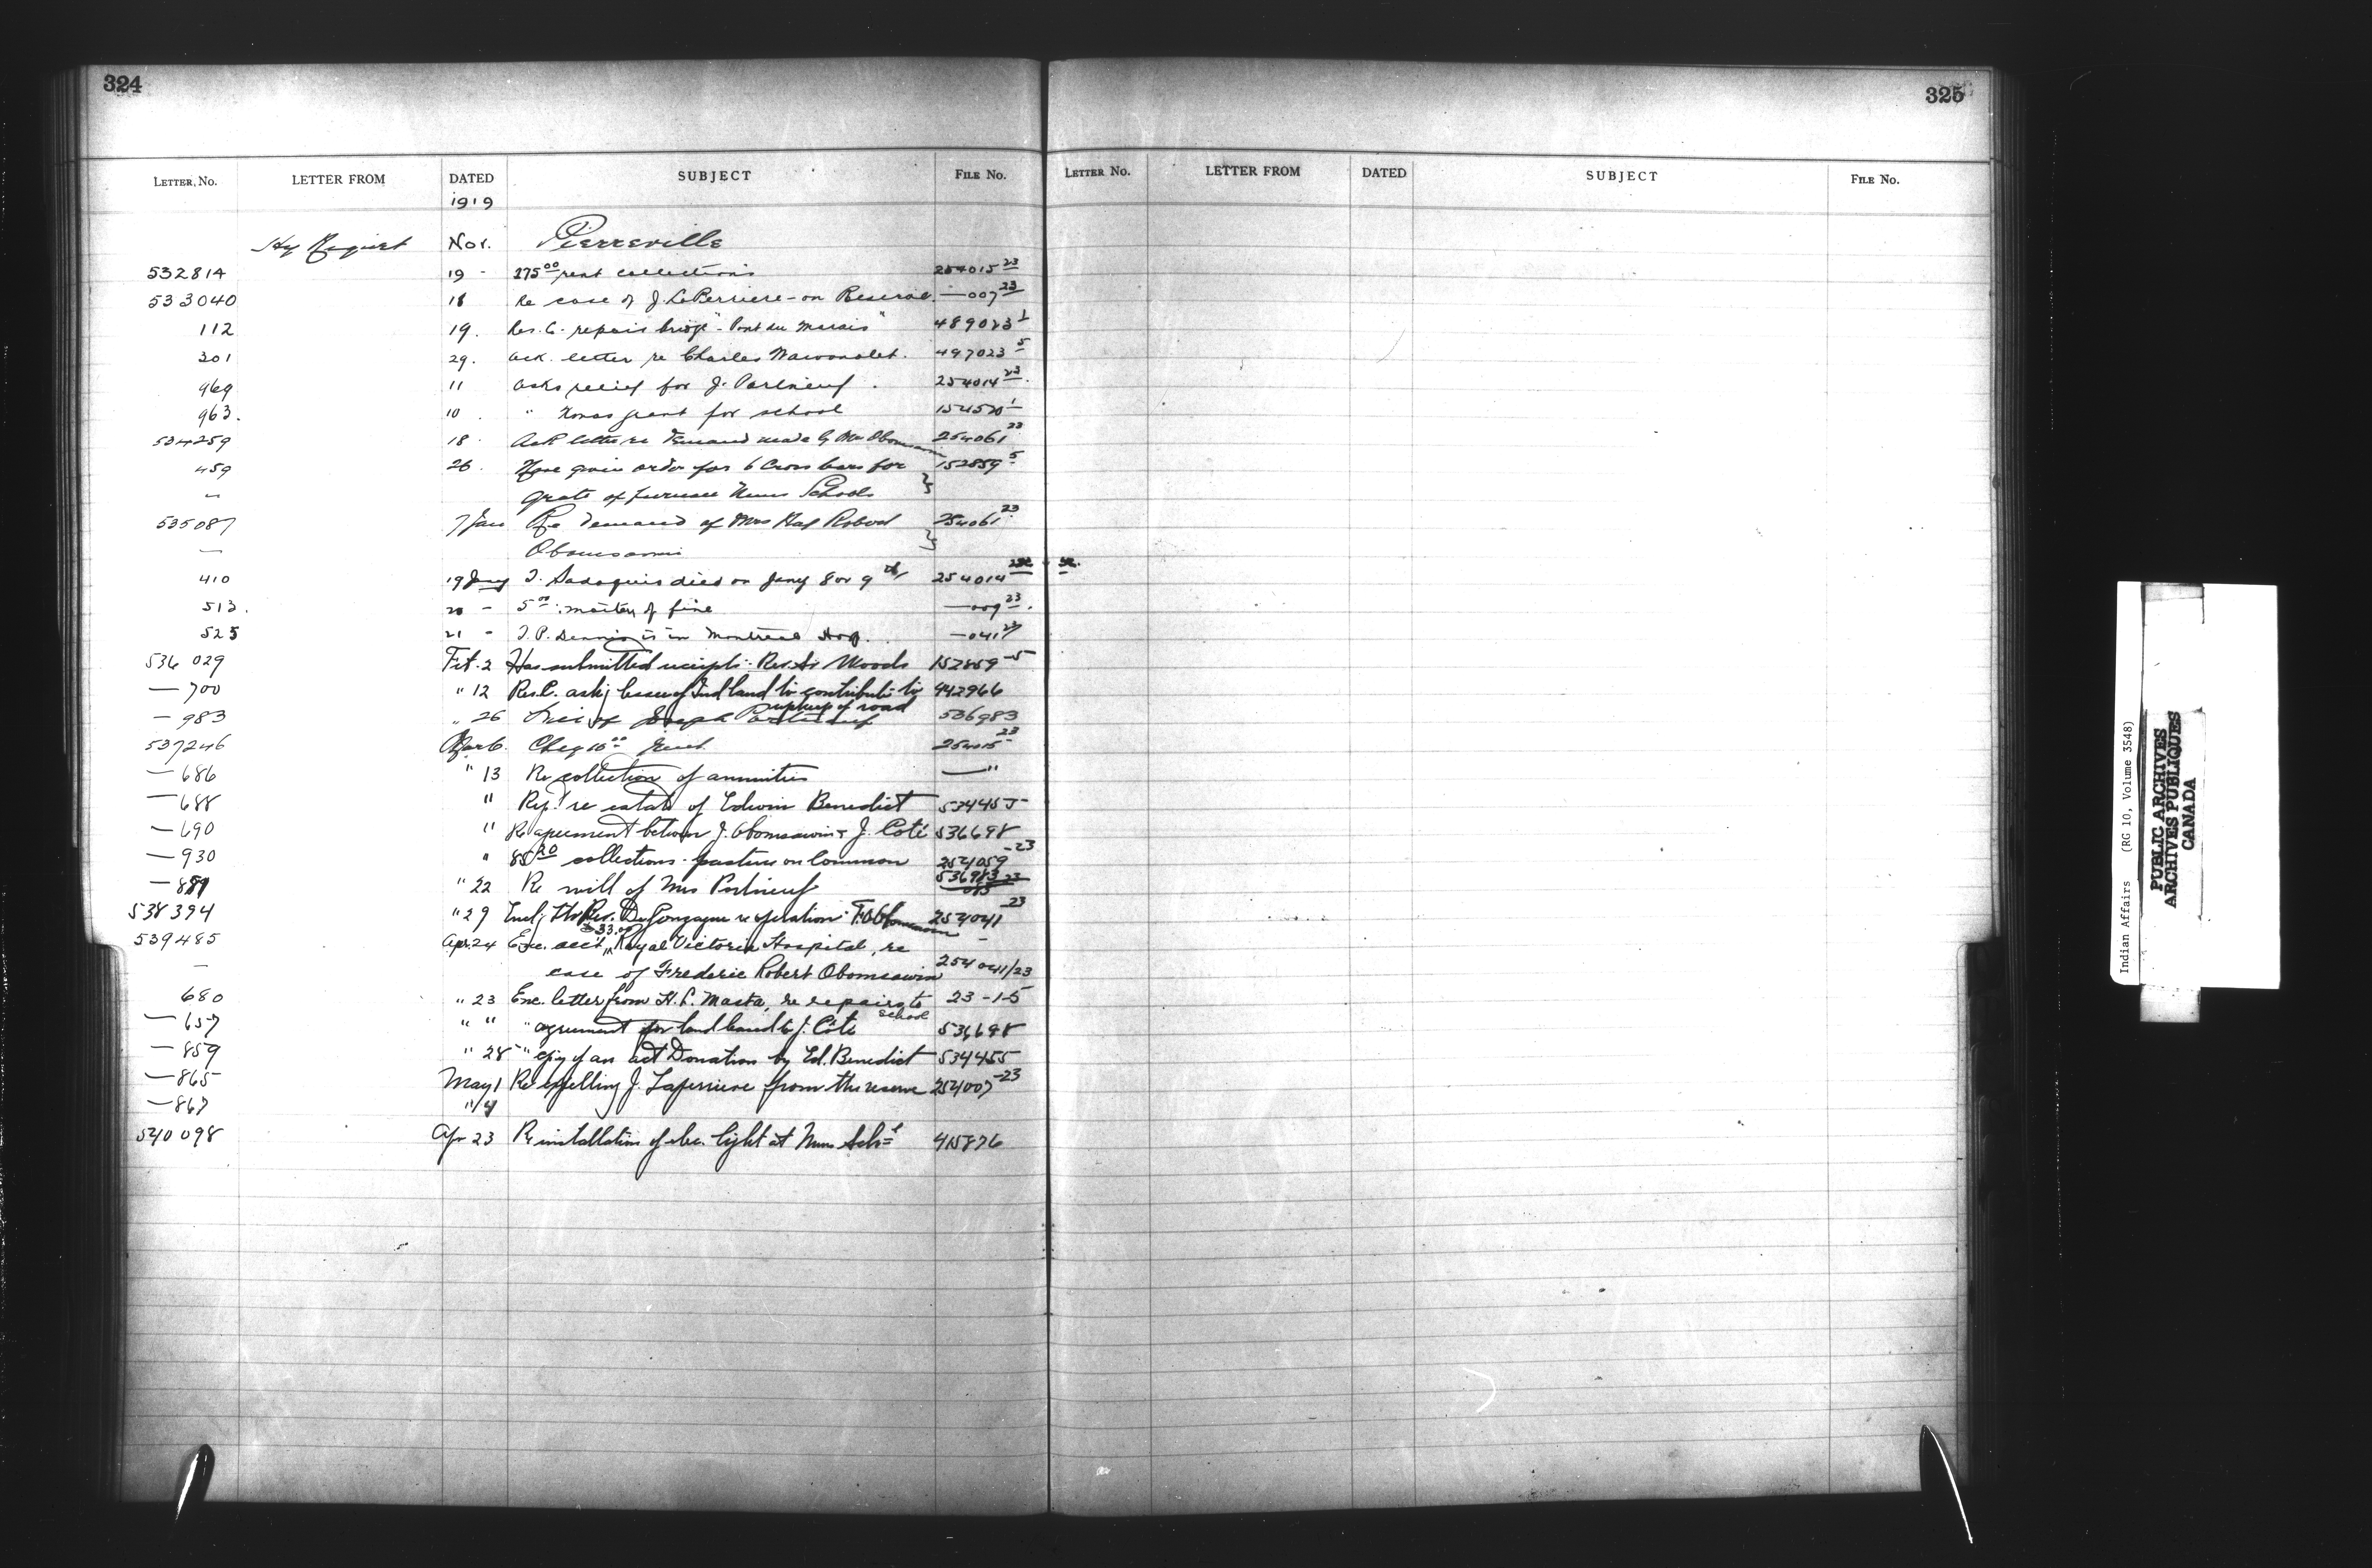 324
325
LETTER NO. LETTER FROM DATED SUBJECT FILE NO.
LETTER NO. LETTER FROM DATED SUBJECT FILE NO.
1919
Hy Nov. Pierreville
532814 19 - 275 00 rent collections 254015 23
533040 18 Re case of J. LaPerriere - on Reserve. — 007 23
112 19. Res. C. repair bridge "Pont du Marais" 489023 1
301 29. Ack. letter re Charles Wawanolet. 497023 5
969 11 asks relief for J. Portneuf. 254014 23.
963. 10. " Xmas grant for school 154520 1
534259 18. Ack letter re demand made by Mrs 254061 23
459 26. Have given order for 6 Cross bars for 152859 5
grate of furnace Schools
535087 7 Jan Re demand of Mrs Robert 254061 23
— Obomsawin
410 19 Jany T. Sadoquis died on Jany 8 or 9th 254014
513. 20 - 5 00 : moiety of fine — 009 23.
525 21 - T. P. Dennis is in Montreal Hosp. — 041 23
536 029 Feb. 2 Has submitted receipt - Rev. Woods 152859 -5
— 700 " 12 Res. C. lessee of Ind land to contribute to 442966
upkeep of road
— 983 " 26 of Joseph 536983
537246 Mar 6. Cheq 254015 23
— 686 " 13 Re collection of annuities — "
— 688 " Rep. re estate of Edwin Benedict 534455
— 690 " Re agreement between J. Obomsawin & J. Coté 536698
— 930 " 85 20 collections - pasture on Common 254059 -23
— " 22 Re will of Mrs Portneuf 536983 23
538394 " 29 Encl. Rev. De Gonzague re operation F. Obomsawin 254041 -23
33.00
539485 Apr. 24 Enc. acct. Royal Victoria Hospital, re
— case of Frederic Robert Obomsawin 254041/23
680 " 23 Enc. letter from H. L. Masta, re repairs to 23-1-5
school
— 657 " " " agreement for land leased to J. Côté 536698
— 859 " 28 " copy of an act Donation by Ed. Benedict 534455
— 865 May 1 Re expelling J. Laperriere from the reserve 254007 -23
— 867 " 14
540098 Apr 23 Re installation of elec. light at Sch=l 415876
Indian Affairs (RG 10, Volume 3548)
PUBLIC ARCHIVES
ARCHIVES PUBLIQUES
CANADA